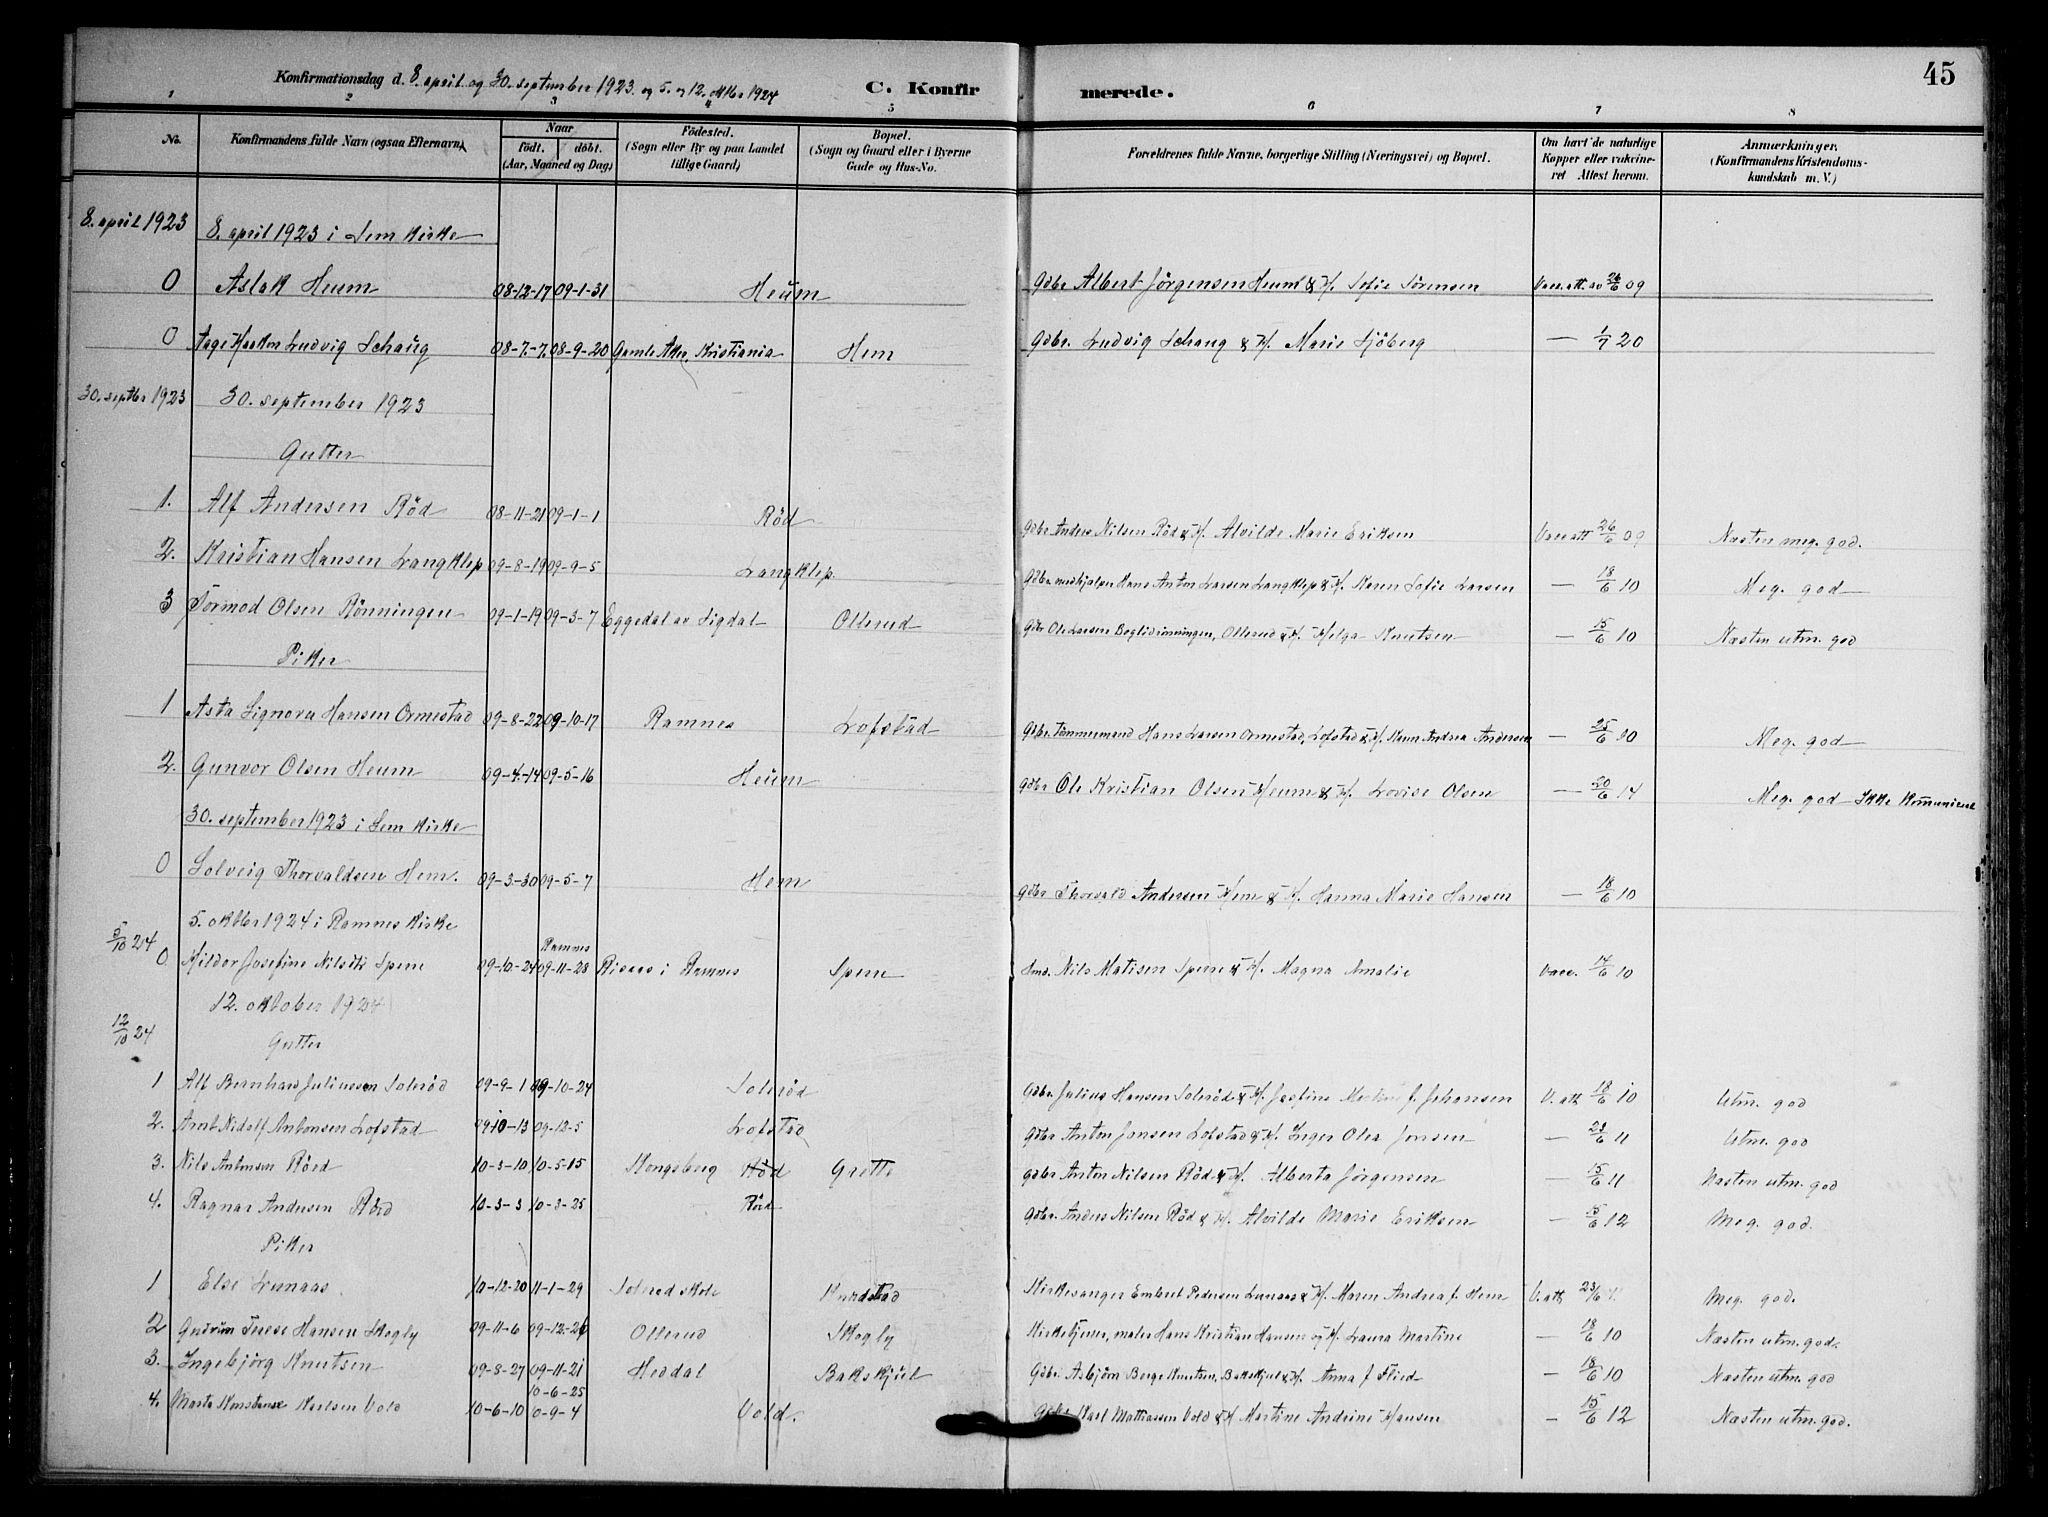 45
Konfirmationsdag d. 8. april og 30. september 1923 og 5. og 12. oktbr 1924
C. Konfirmerede.
1 2 3 4 5 6 7 8
No.
Konfirmandens fulde Navn (ogsaa Efternavn)
Naar
födt. döbt.
(Aar, Maaned og Dag)
Födested.
(Sogn eller By og paa Landet
tillige Gaard)
Bopæl.
(Sogn og Gaard eller i Byerne
Gade og Hus-No.
Forældrenes fulde Navne, borgerlige Stilling (Næringsvei) og Bopæl.
Om havt de naturlige
Kopper eller vakcine-
ret Attest herom.
Anmærkninger.
(Konfirmandens Kristendoms-
kundskab m. V.)
8. april 1923 8. april 1923 i Sem kirke
0 Aslak Heum 08-12-17 09-1-31 Heum Gdbr Albert Jörgensen Heum & H. Sofie Sörensen Vacc. att. av 26/6 09
0 Aage Haakon Ludvig Schaug 08-7-7 08-9-20 Gamle Aker, Kristiania Hem Gdbr. Ludvig Schaug & H. Marie Sjöberg — 1/7 20
30. septbr 1923 30. september 1923
Gutter
1. Alf Andersen Röd 08-11-21 09-1-1 Röd Gdbr Anders Nilsen Röd & H. Alvilde Marie Eriksen Vacc att 26/6 09 Næsten meg. god.
2. Kristian Hansen Langklep 09-8-19 09-9-5 Langklep. Gdbr. Hans Anton Larsen Langklep & H. Karen Sofie Larsen — 18/6 10 Meg. god
3 Tormod Olsen Rönningen 09-1-19 09-3-7 Eggedal av Sigdal Ollerud Gdbr Ole Larsen Ollerud & H. Helga Knutsen — 15/6 10 Næsten utm. god
Piker
1 Asta Signora Hansen Ormestad 09-8-22 09-10-17 Ramnes Lofstad Gdbr. Tömmermand Hans Larsen Ormestad, Lofstad & H. Karen Andrea Andersen — 25/6 10 Meg. god
2. Gunvor Olsen Heum 09-4-14 09-5-16 Heum Gdbr Ole Kristian Olsen Heum & H. Lovise Olsen — 20/6 14 Meg. god – Ikke
30. september 1923 i Sem kirke
0 Solveig Thorvaldsen Hem. 09-3-30 09-5-7 Hem Gdbr Thorvald Andersen Hem & H. Hanna Marie Hansen — 18/6 10
5. oktber 1924 i Ramnes kirke
5/10 24 0. Hildor Josefine Spene 09-10-24 Ramnes 09-11-28 i Ramnes Spene Smd. Nils Matisen Spene & H. Magna Amalie Vacc. 17/6 10
12. oktober 1924
12/10 24 Gutter
1 Alf Bernhard Juliussen Soleröd 09-9-1 09-10-24 Soleröd Gdbr. Julius Hansen Soleröd & H. Josefine f. Johansen V. att 18/6 10 Utm. god
2. Arnt Nidolf Antonsen Lofstad 09-10-13 09-12-5 Lofstad Gdbr Anton Jansen Lofstad & H. Inger Olea Jonsen — 23/6 11 Utm. god
3. Nils Antonsen Röed 10-3-10 10-5-15 Kongsberg Röd Grette Gdbr. Anton Nilsen Röd & H. Alberta Jörgensen — 15/6 11 Næsten utm. god
4. Ragnar Andersen Röed 10-3-3 10-3-25 Röd Gdbr. Anders Nilsen Röd & H. Alvilde Marie Eriksen — 15/6 12 Meg. god.
Piker
1 Else Lunaas 10-12-20 11-1-29 Solerød skole Kirkesanger Embret Pedersen Lunaas & H. Maren Andrea f. Hem V. att 23/6 Meg. god.
2 Gudrun Terese Hansen Skogly 09-11-6 09-12-26 Ollerud Skogly Kirketjener, maler Hans Kristian Hansen og H. Laura Martine — 18/6 10 Næsten utm. god.
3. Ingebjörg Knutsen 09-8-27 09-11-21 Heddal Bakskjul Gdbr. Asbjörn Berge Knutsen, Bakskjul & H. Anna f. Flied — 18/6 10 Næsten utm. god
4. Marta Konstanse Karlsen Vold 10-6-10 10-6-25 10-9-4 Vold. Gdbr Karl Mathiassen Vold & H. Martine Andrine Hansen — 15/6 12 Næsten utm. god.